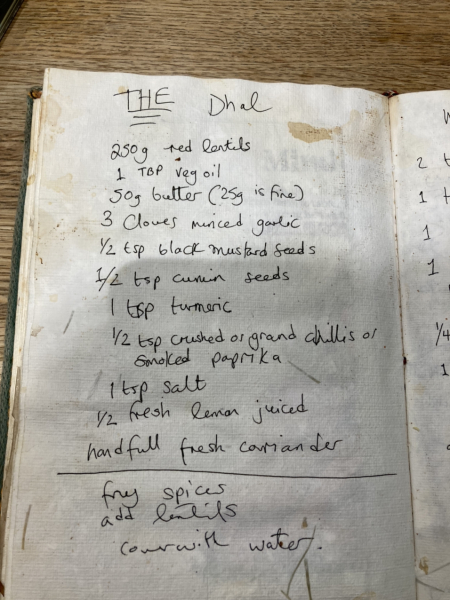 THE Dhal
250g red lentils
1 TBP veg oil
50g butter (25g is fine)
3 Cloves minced garlic
1/2 tsp black mustard seeds
1/2 tsp cumin seeds
1 tsp turmeric
1/2 tsp crushed or grand chillis or
smoked paprika
1 tsp salt
1/2 fresh lemon juiced
handfull fresh corriander
fry spices
add lentils
cover with water.
2
1
1
1
1/4
1